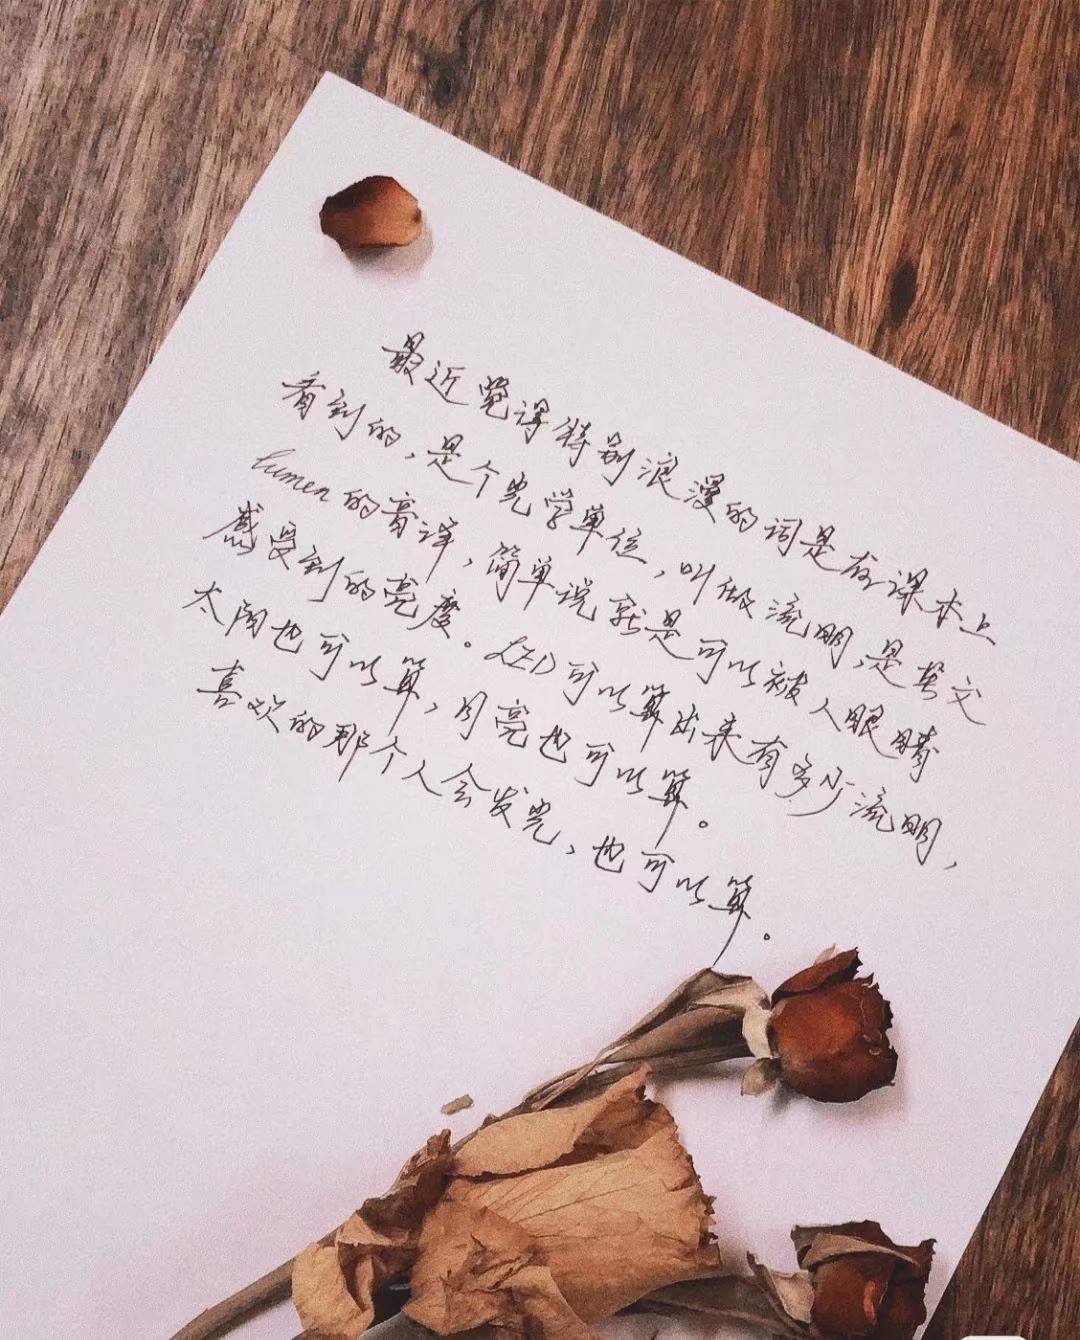 最近觉得特别浪漫的词是在课本上
看到的，是个光学单位，叫做流明，是英文
lumen的音译，简单说就是可以被人眼睛
感受到的亮度。LED可以算出来有多少流明，
太阳也可以算，月亮也可以算。
喜欢的那个人会发光，也可以算。